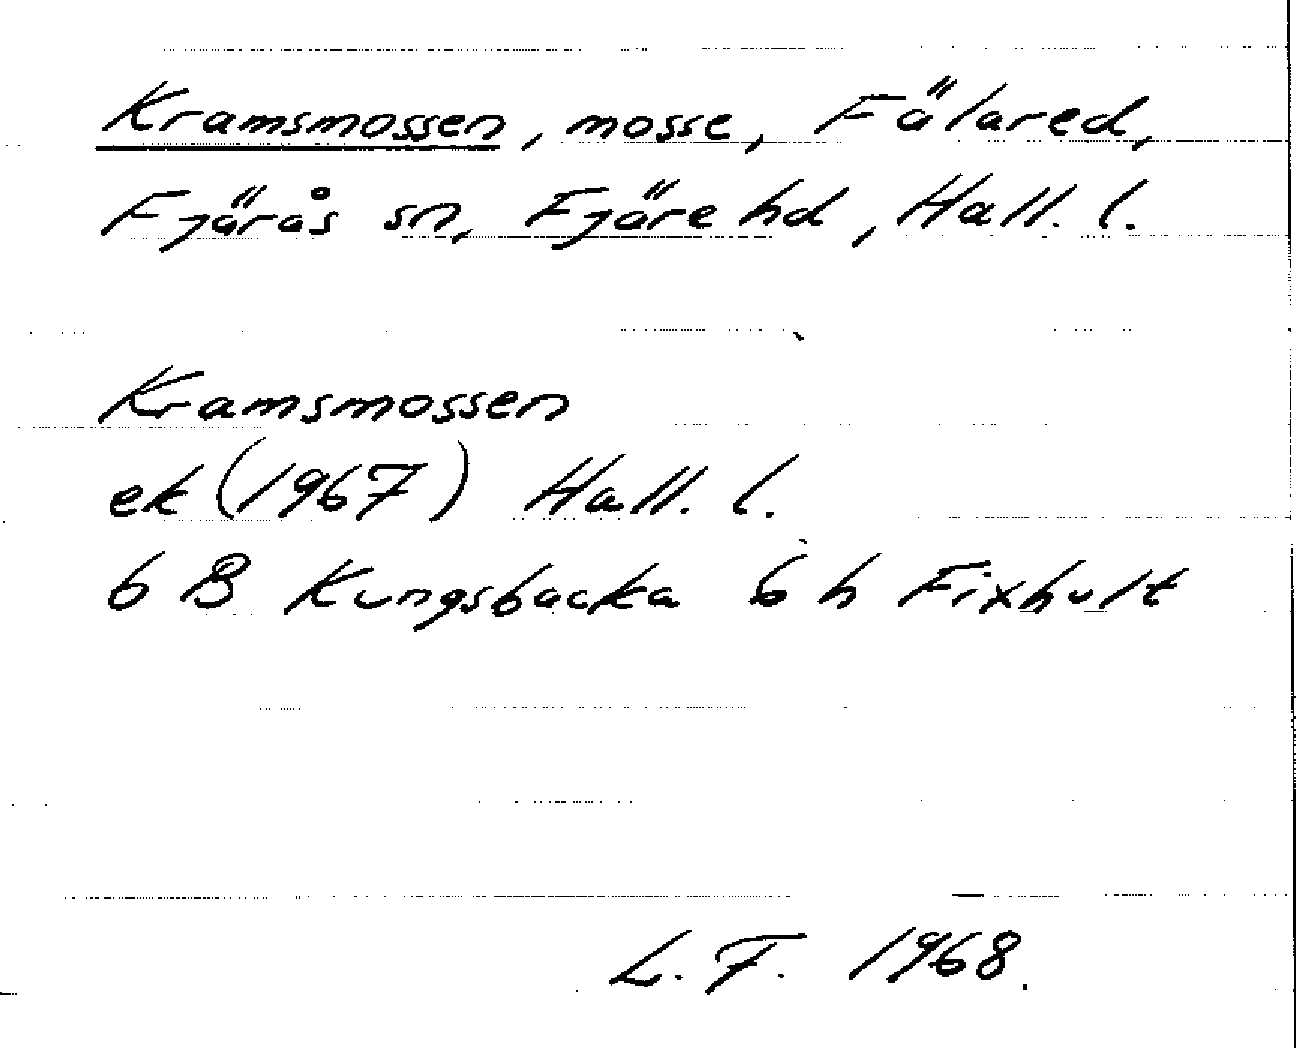 Kramsmossen, mosse, Fälared,
Fjärås sn, Fjäre hd, Hall. l.
Kramsmossen
ek (1967) Hall. l.
6 B Kungsbacka 6 h Fixhult
L. F. 1968.